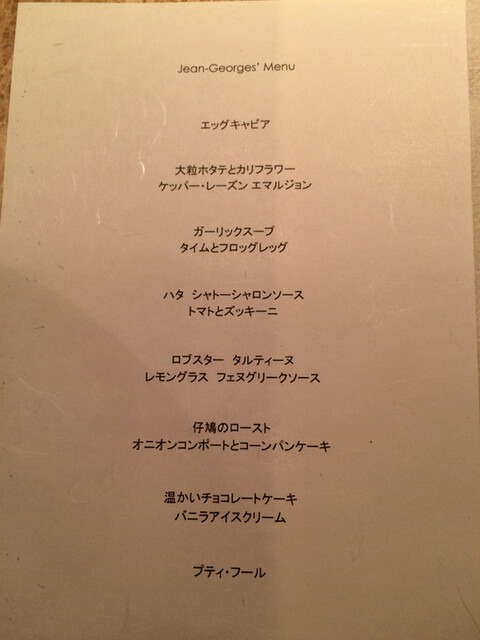 Jean-Georges' Menu
エッグキャビア
大粒ホタテとカリフラワー
ケッパー・レーズン エマルジョン
ガーリックスープ
タイムとフロッグレッグ
ハタ シャトーシャロンソース
トマトとズッキーニ
ロブスター タルティーヌ
レモングラス フェヌグリークソース
仔鳩のロースト
オニオンコンポートとコーンパンケーキ
温かいチョコレートケーキ
バニラアイスクリーム
プティ・フール